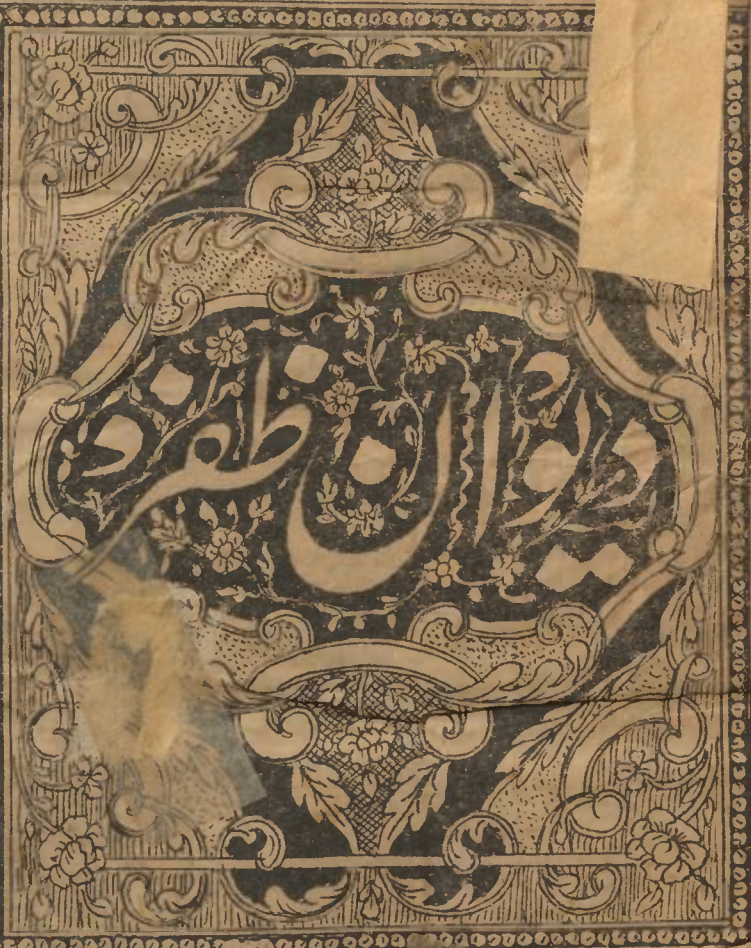 دیوان ظفر